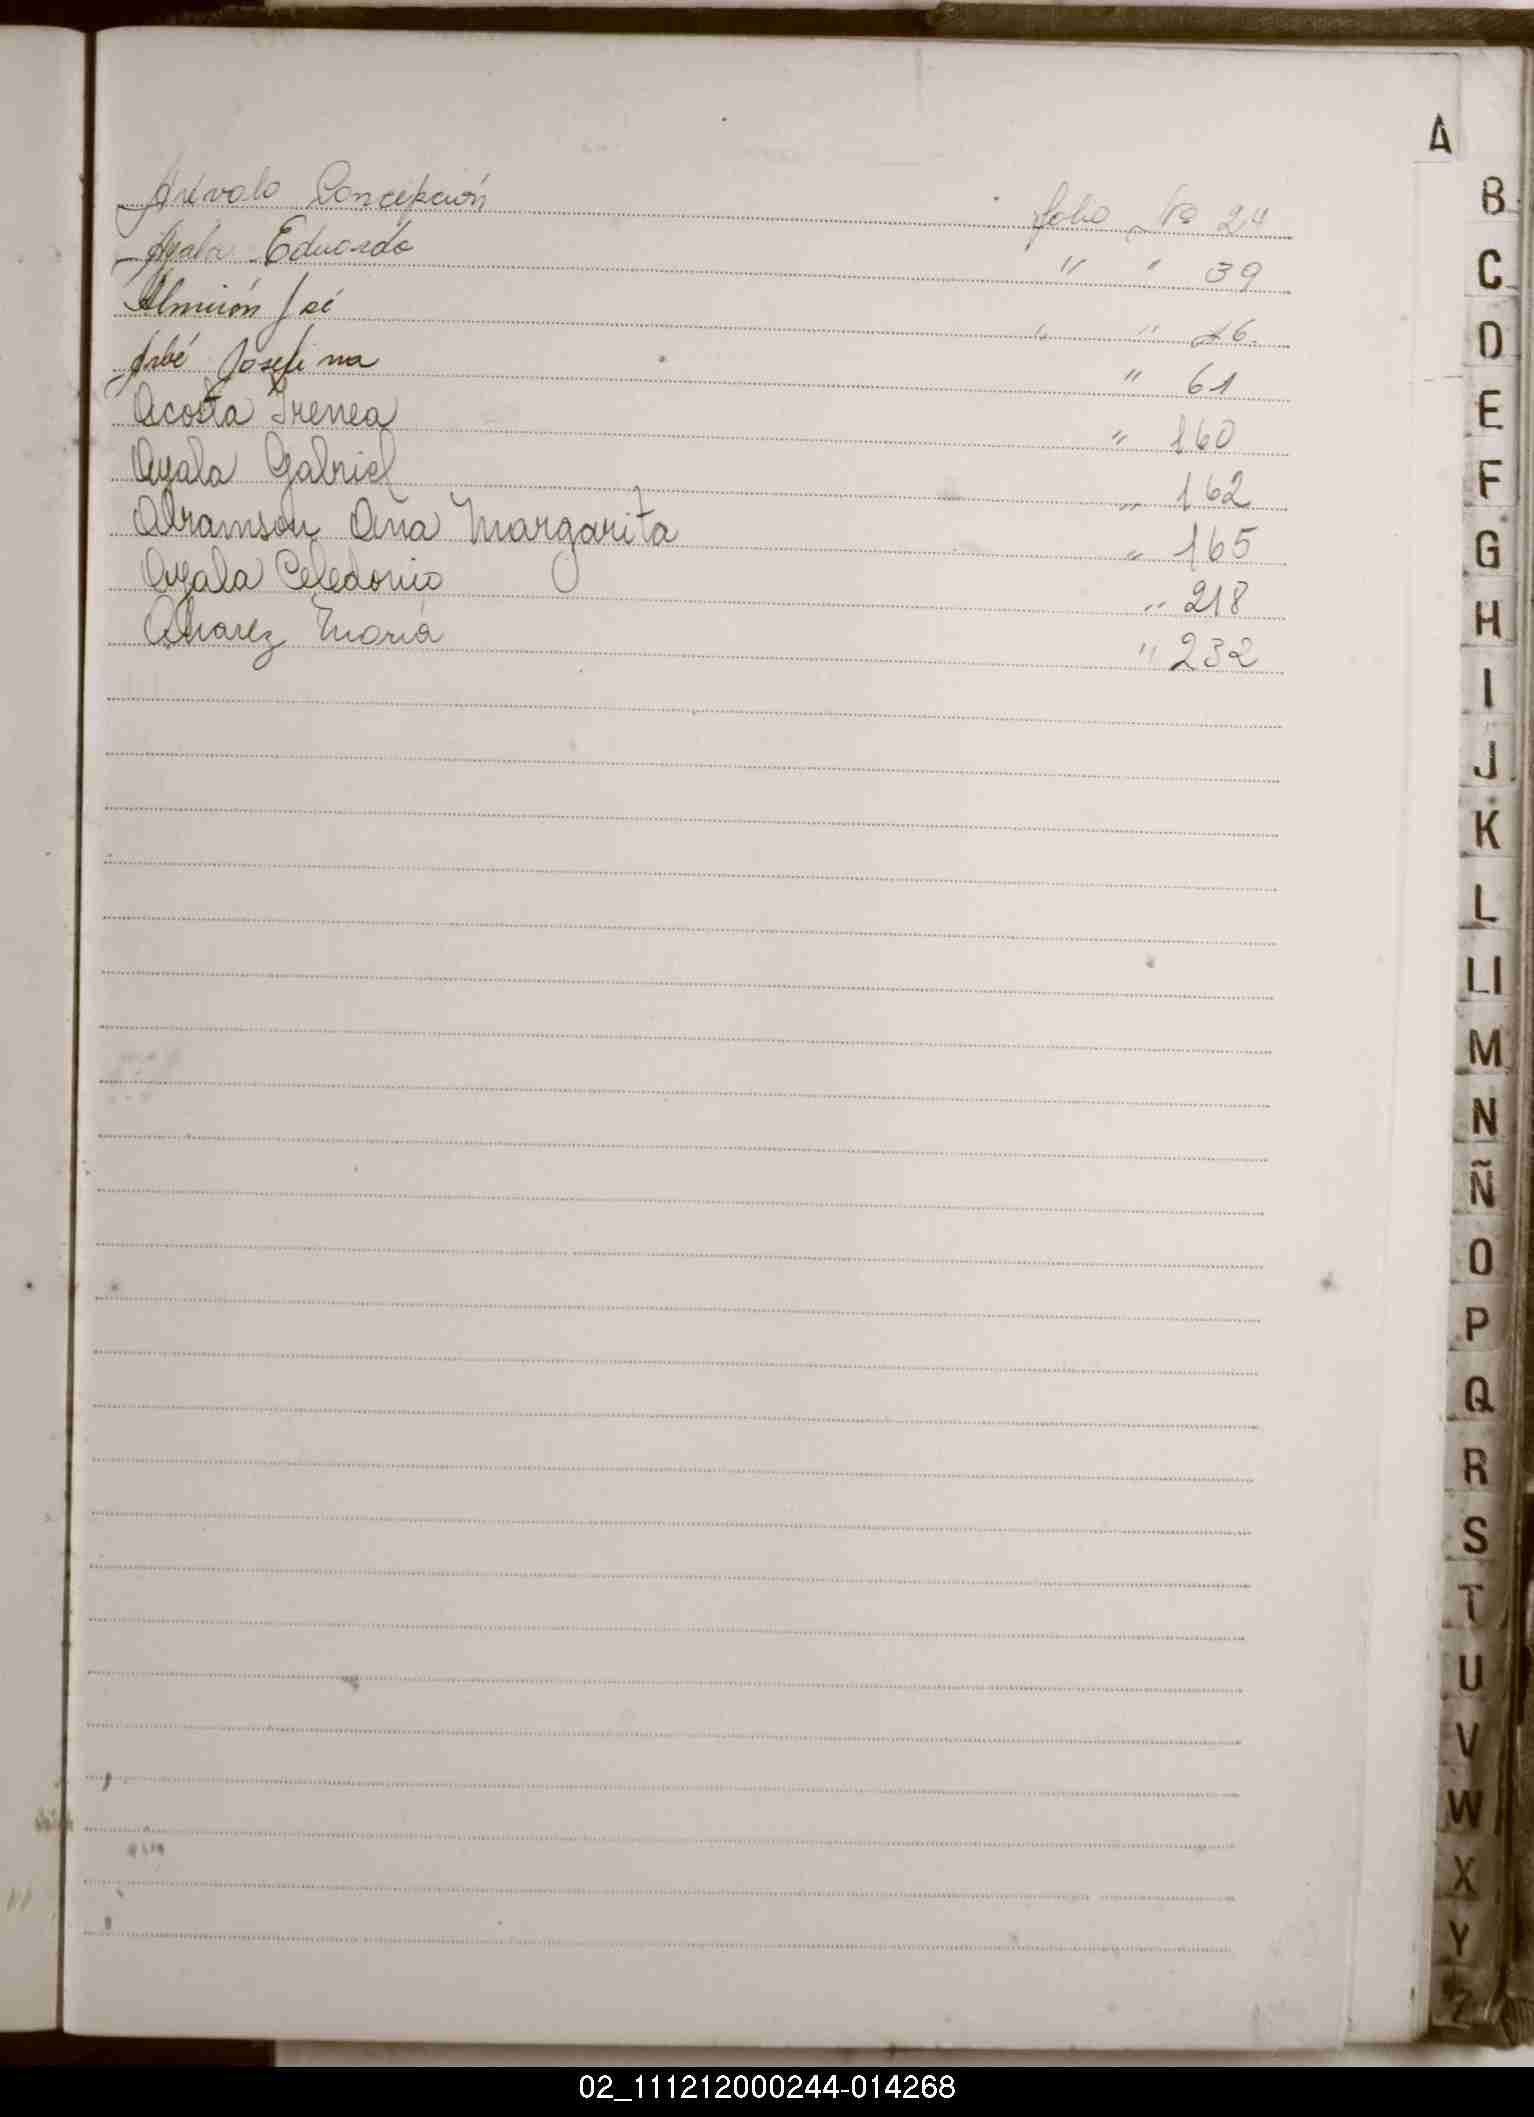 Arévalo Concepción folio Nº 24
Ayala Eduardo " " 39
Almirón José " " 46.
Arbé Josefina " 61
Acosta Irenea " 160
Ayala Gabriel " 162
Abramson Ana Margarita " 165
Ayala Celedonio " 218
Alvarez María " 232
A
B
C
D
E
F
G
H
I
J
K
L
Ll
M
N
Ñ
O
P
Q
R
S
T
U
V
W
X
Y
Z
02_111212000244-014268